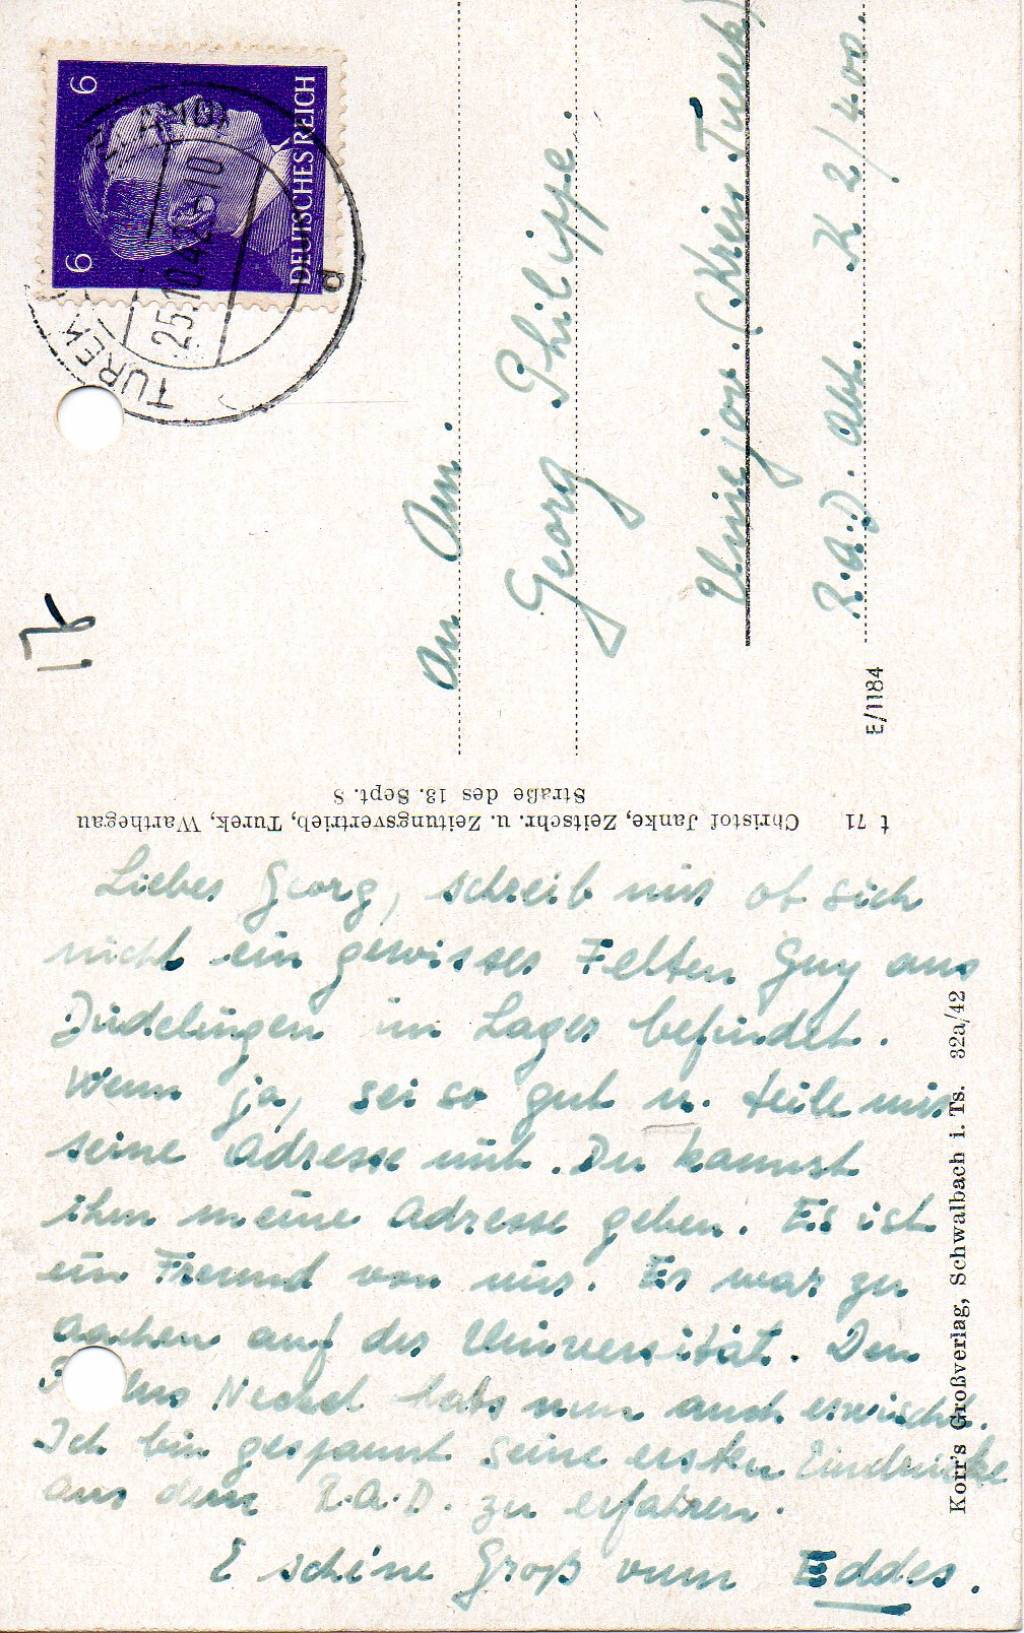 6 6
DEUTSCHES REICH
TUREK
25.10.42-10
d
An Am.
Georg Philippe.
(Kreis Turek)
R.A.D. Abt. K 2/400.
E/1184
t 71 Christof Janke, Zeitschr. u. Zeitungsvertrieb, Turek, Warthegau
Straße des 13. Sept. 8
Liebes Georg, schreib mir ob sich
nicht ein gewisses Felten Guy aus
Düdelingen im Lager befindet.
Wenn ja, sei so gut u. teile mir
seine Adresse mit. Du kannst
ihm meine Adresse geben. Es ist
ein Freund von mir. Er war zu
Aachen auf der Universität. Den
nun auch erwischt.
Ich bin gespannt seine ersten Eindrücke
aus dem R.A.D. zu erfahren.
E schéine Groß vum Eddes.
Korr's Großverlag, Schwalbach i. Ts. 32a/42